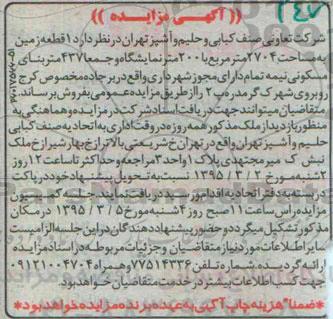 ۲۴۷
(( آگهی مزایده ))
شرکت تعاونی صنف کبابی و حلیم و آشپز تهران در نظر دارد ۱ قطعه زمین
به مساحت ۲۷۰۴ متر مربع با ۲۰۰ متر نمایشگاه و جمعا ۴۳۷ متر بنای
مسکونی نیمه تمام دارای مجوز شهرداری واقع در برجاده مخصوص کرج
روبروی شهرک گرمدره پ ۲ را از طریق مزایده عمومی بفروش برساند.
متقاضیان میتوانند جهت دریافت اسناد شرکت در مزایده و هماهنگی به
منظور بازدید از ملک مذکور همه روزه در وقت اداری به اتحادیه صنف کبابی
حلیم و آشپز تهران واقع در تهران خ شریعتی بالاتر از خ بهار شیراز خ ملک
نبش ک میر مجتهدی پلاک ۱ واحد ۳ مراجعه و حداکثر تا ساعت ۱۲ روز
۲شنبه مورخ ۱۳۹۵/۳/۲ نسبت به تحویل پیشنهاد خود در پاکت
در بسته به دفتر اتحادیه اقدام و رسید دریافت نماید. جلسه کمیسیون
مزایده راس ساعت ۱۱ صبح روز ۴شنبه مورخ ۱۳۹۵/۳/۵ در مکان
مذکور تشکیل میگردد و حضور پیشنهاد دهندگان در این جلسه الزامیست
سایر اطلاعات مورد نیاز متقاضیان و جزئیات مربوطه در اسناد مزایده
ارائه گردیده. شماره تلفن ۷۷۵۱۴۳۳۶ و همراه ۰۹۱۲۱۰۰۴۷۰۴
جهت کسب اطلاعات بیشتر در خدمت متقاضیان خواهد بود.
*ضمنا" هزینه چاپ آگهی به عهده برنده مزایده خواهد بود*